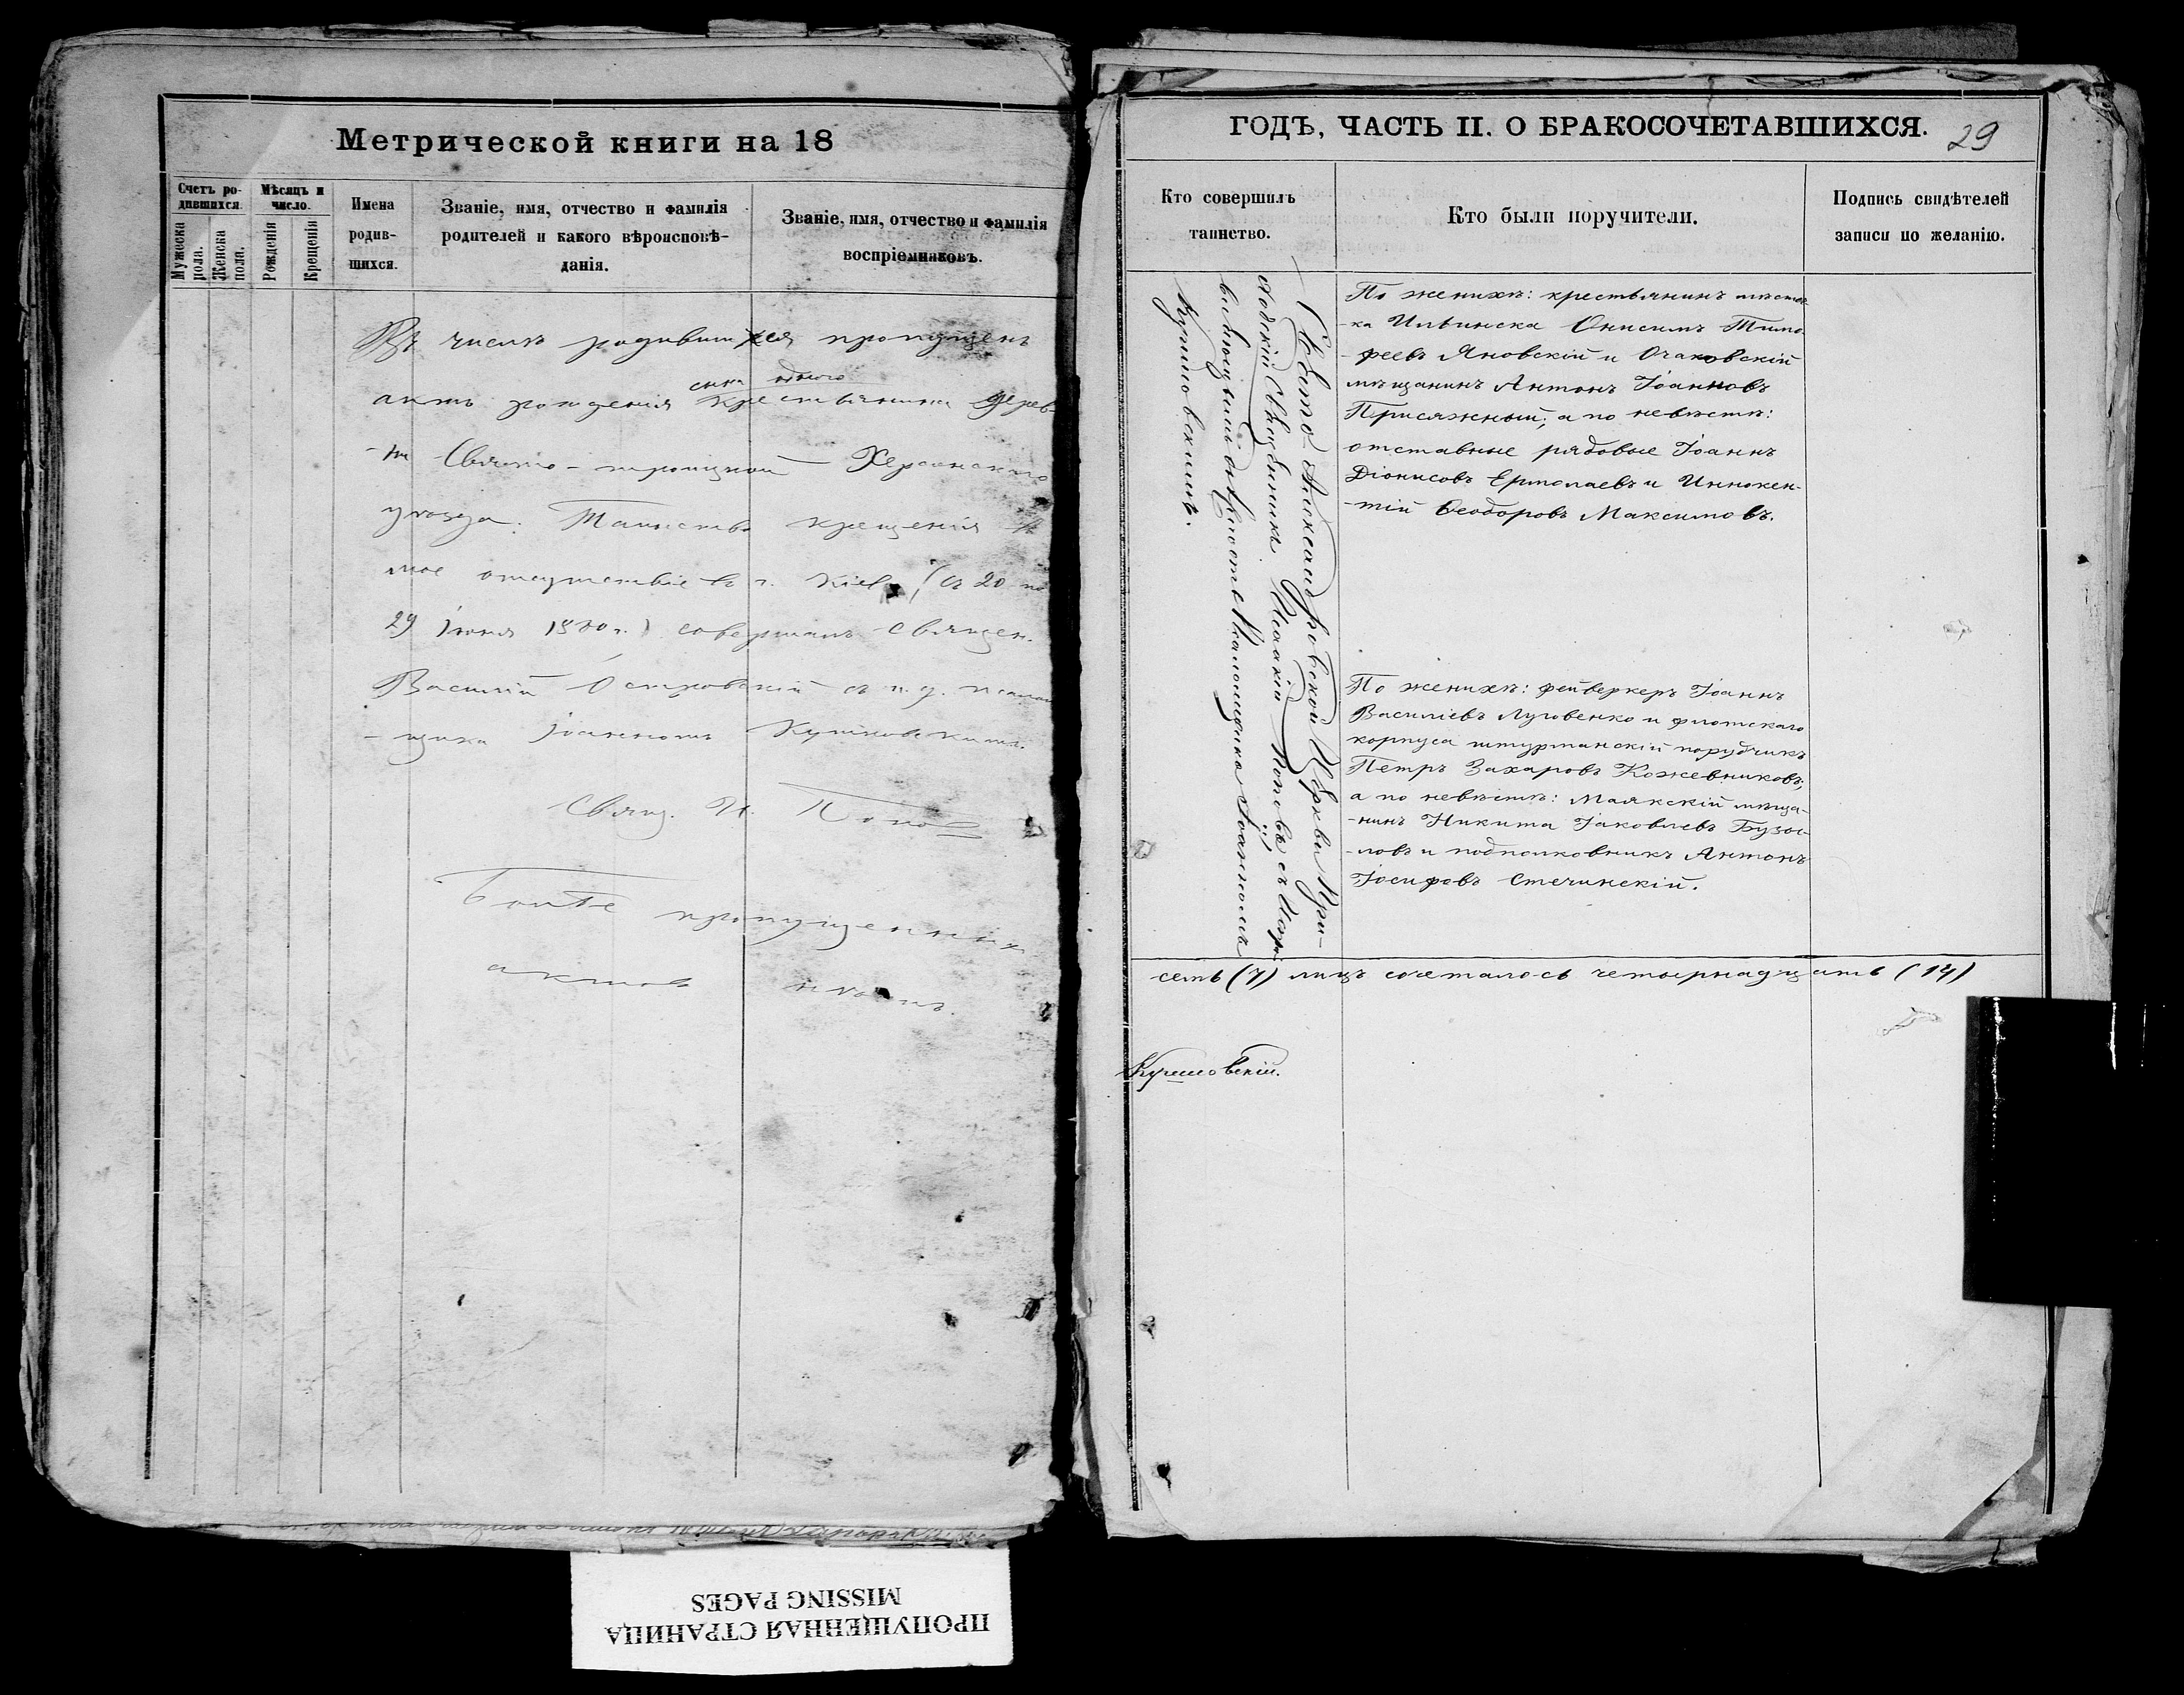 Метрической книги на 18
Счетъ ро-
дившихся.
Мужеска
пола.
Женска
пола.
Мѣсяцъ и
число.
Рожденія
Крещенія
Имена
родив-
шихся.
Званіе, имя, отчество и фамилія
родителей и какого вѣроисповѣ-
данія.
Званіе, имя, отчество и фамилія
воспріемниковъ.
Въ числѣ родившихся пропущенъ
сына одного
актъ рожденія крестьянина дерев-
-ни Свято-троицкой Херсонскаго
уѣзда. Таинство крещенія въ
мое отсутствіе въ г. Кіевѣ (съ 20 по
29 Іюня 1880 г.) совершалъ священ.
Василій Островскій съ и. д. псалом
-щика Іоанномъ
Свящ. И. Поповъ
Болѣе пропущенныхъ
актовъ нѣтъ.
ГОДЪ, ЧАСТЬ II. О БРАКОСОЧЕТАВШИХСЯ.
29
Кто совершилъ
таинство.
Кто были поручители.
Подпись свидѣтелей
записи по желанію.
Свято Александровской Церкви При-
ходскій Священникъ Исаакій Поповъ съ Испра-
вляющимъ должность Псаломщика Іоанномъ
По женихѣ: крестьянинъ мѣстеч-
-ка Ильинска Онисимъ Тимо-
-феевъ Яновскій и Очаковскій
мѣщанинъ Антонъ Іоанновъ
Присяжный; а по невѣстѣ:
отставные рядовые Іоаннъ
Діонисовъ Ермолаевъ и Иннокен-
-тій Ѳеодоровъ Максимовъ.
По женихѣ: фейверкеръ Іоаннъ
Василіевъ Луговенко и флотскаго
корпуса штурманскій поручикъ
Петръ Захаровъ Кожевниковъ;
а по невѣстѣ: Маякскій мѣща-
-нинъ Никита Іаковлевъ
и подполковникъ Антонъ
Іосифовъ Стечинскій.
семь (7) лицъ сочеталось четырнадцать (14)
ПРОПУЩЕННАЯ СТРАНИЦА
MISSING PAGES